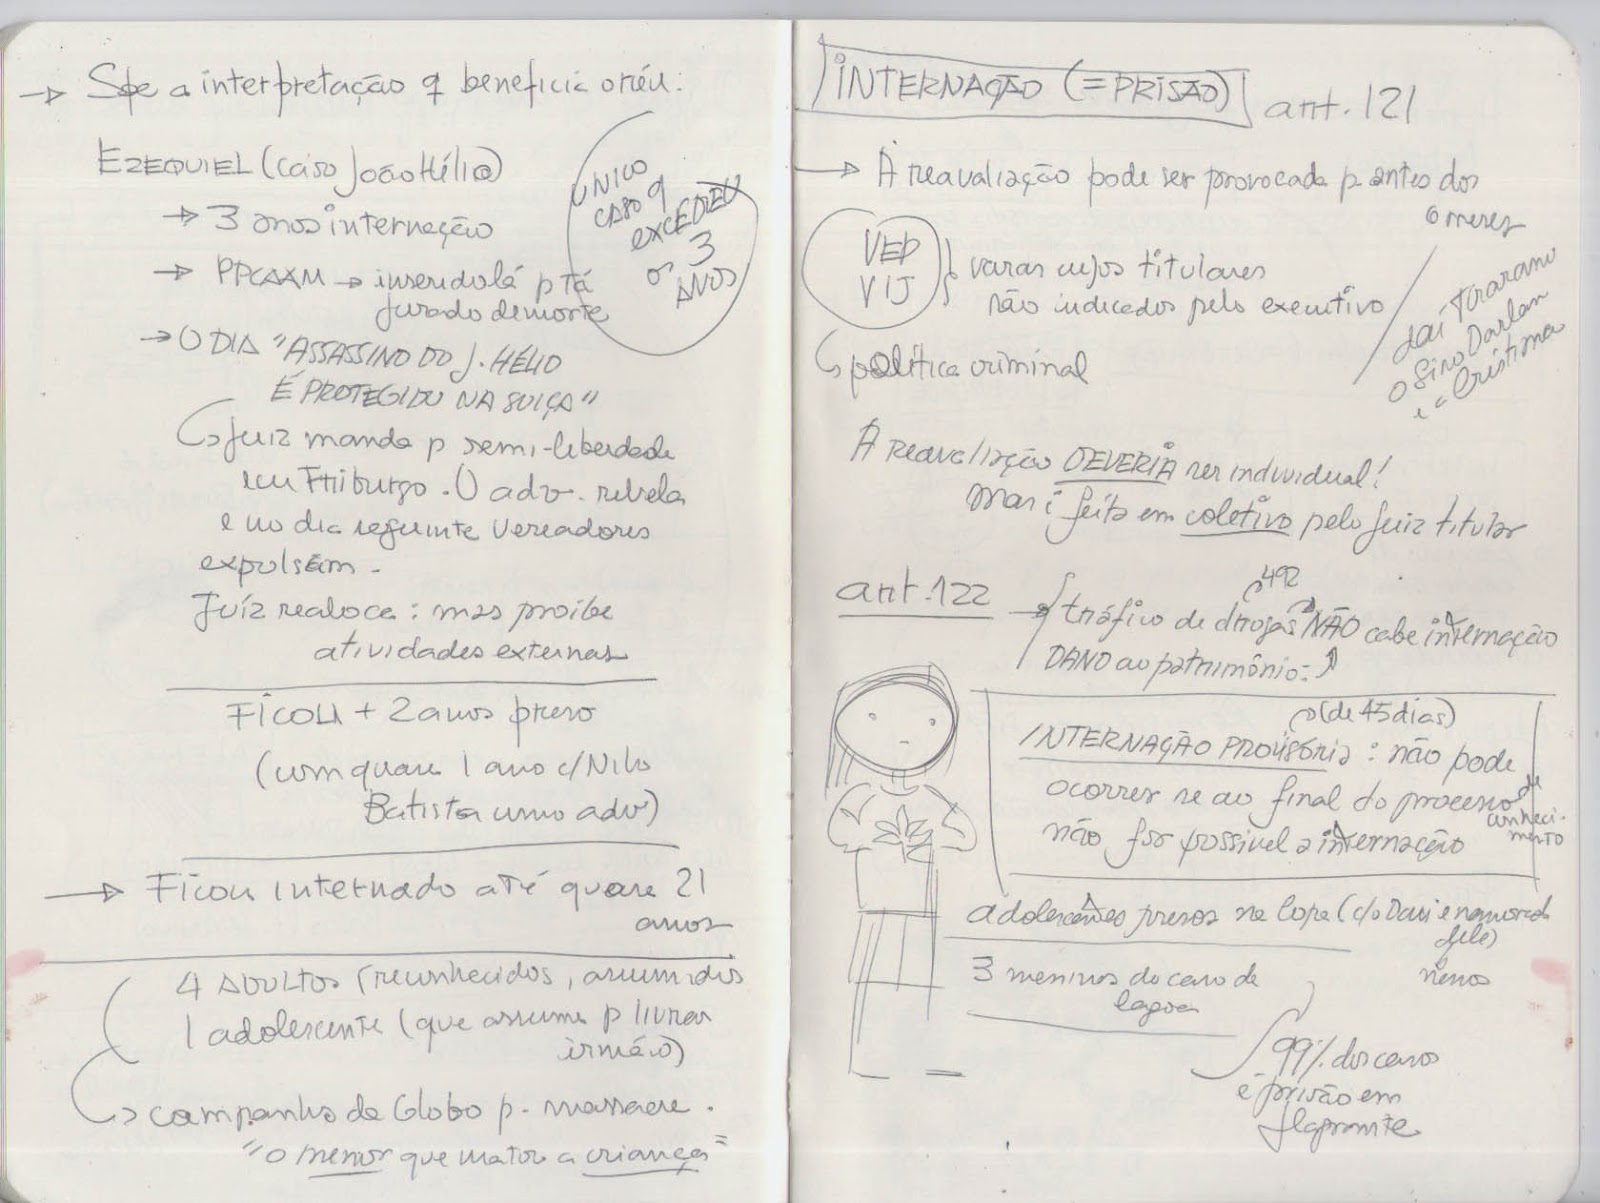 → Spe a interpretação q beneficia o réu:
EZEQUIEL (caso João Hélio)
→ 3 anos internação
→ PPCAAM → inserido lá p tá
jurado de morte
ÚNICO
CASO q
EXCEDEU
os 3
ANOS
→ O DIA "ASSASSINO DO J. HÉLIO
É PROTEGIDO NA SUIÇA"
↳ Juiz manda p semi-liberdade
em Friburgo. O adv. revela
e no dia seguinte vereadores
expulsam.
Juiz realoca: mas proibe
atividades externas
FICOU + 2 anos preso
(com quase 1 ano c/ Nilo
Batista como adv)
→ Ficou internado até quase 21
anos
4 ADULTOS (reconhecidos, assumidos
1 adolescente (que assume p livrar
irmão)
↳ campanha da Globo p. massacre.
"o menor que matou a criança"
INTERNAÇÃO (=PRISÃO) art. 121
→ A reavaliação pode ser provocada p antes dos
6 meses
VEP
VIJ } varas cujos titulares
não indicados pelo executivo
↳ política criminal
daí tiraram
o Siro Darlan
e a Cristina
A reavaliação DEVERIA ser individual!
Mas é feita em coletivo pelo juiz titular
art. 122 → tráfico de drogas NÃO cabe internação
492
DANO ao patrimônio:
(de 45 dias)
INTERNAÇÃO PROVISÓRIA: não pode
ocorrer se ao final do processo de
conheci-
mento
não for possível a internação
adolescentes presos na Copa (c/o Davi e namorada
dele)
3 meninos do caso da
lagoa
nenos
99% dos casos
é prisão em
flagrante